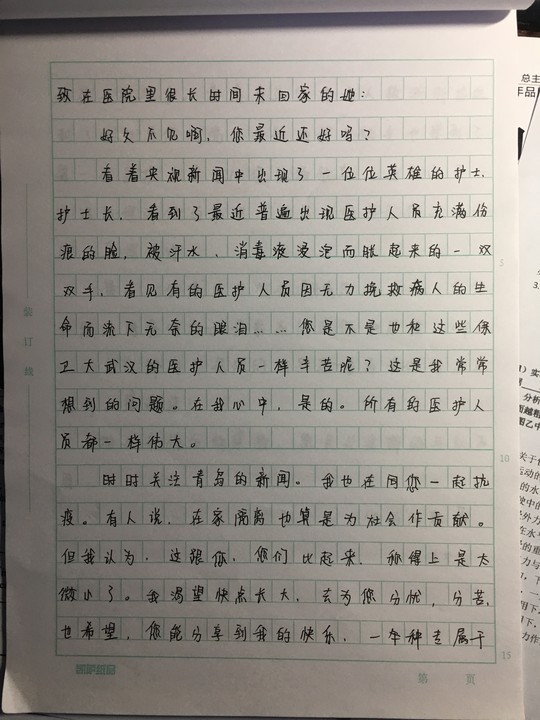 致在医院里很长时间未回家的她：
好久不见啊，您最近还好吗？
看着央视新闻中出现了一位位英雄的护士、
护士长，看到了最近普遍出现医护人员充满伤
痕的脸，被汗水、消毒液浸泡而胀起来的一双
双手，看见有的医护人员因无力挽救病人的生
命而流下无奈的眼泪……您是不是也和这些保
卫大武汉的医护人员一样辛苦呢？这是我常常
想到的问题。在我心中，是的。所有的医护人
员都一样伟大。
时时关注青岛的新闻。我也在同您一起抗
疫。有人说，在家隔离也算是为社会作贡献。
但我认为，这跟您、您们比起来，称得上是太
微小了。我渴望快点长大，去为您分忧，分苦，
也希望，您能分享到我的快乐，一种专属于
5
10
15
装
订
线
第 页
总主
3.
分析
图乙中